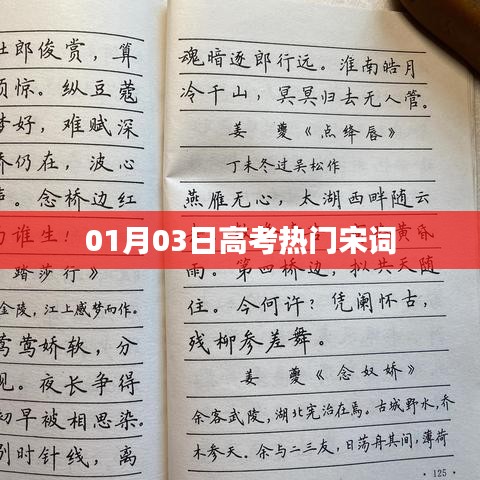 杜郎俊赏，算
须惊。纵豆蔻
梦好，难赋深
桥仍在，波心
声。念桥边红
为谁生！
踏莎行》
金陵，江上感梦而作。
莺莺娇软，分
见。夜长争得
初早被相思染。
别时针线，离
魂暗逐郎行远。淮南皓月
冷千山，冥冥归去无人管。
姜夔《点绛唇》
丁未冬过吴松作
燕雁无心，太湖西畔随云
黄昏
01月03日高考热门宋词
雨。第四桥边，拟共天随
住。今何许？凭阑怀古，
残柳参差舞。
姜夔《念奴娇》
余客武陵，湖北宪治在焉。古城野水，乔
木参天。余与二三友，日荡舟其间，薄荷
·125·